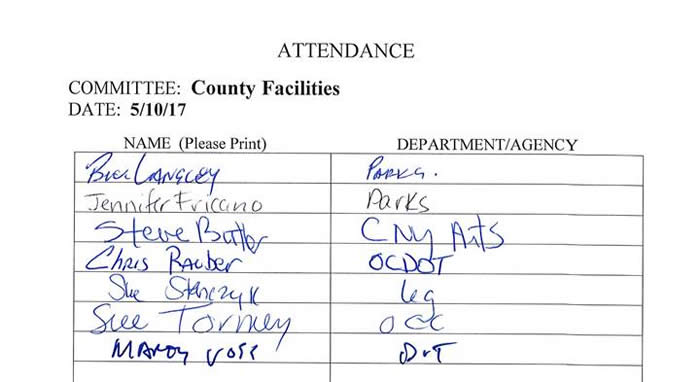 ATTENDANCE
COMMITTEE: County Facilities
DATE: 5/10/17
NAME (Please Print) DEPARTMENT/AGENCY
Bill Langley Parks.
Jennifer Fricano Parks
Steve Butler CNY Arts
Chris Rauber OCDOT
Sue Stanczyk Leg
Sue Tormey OCC
Marty Voss DOT